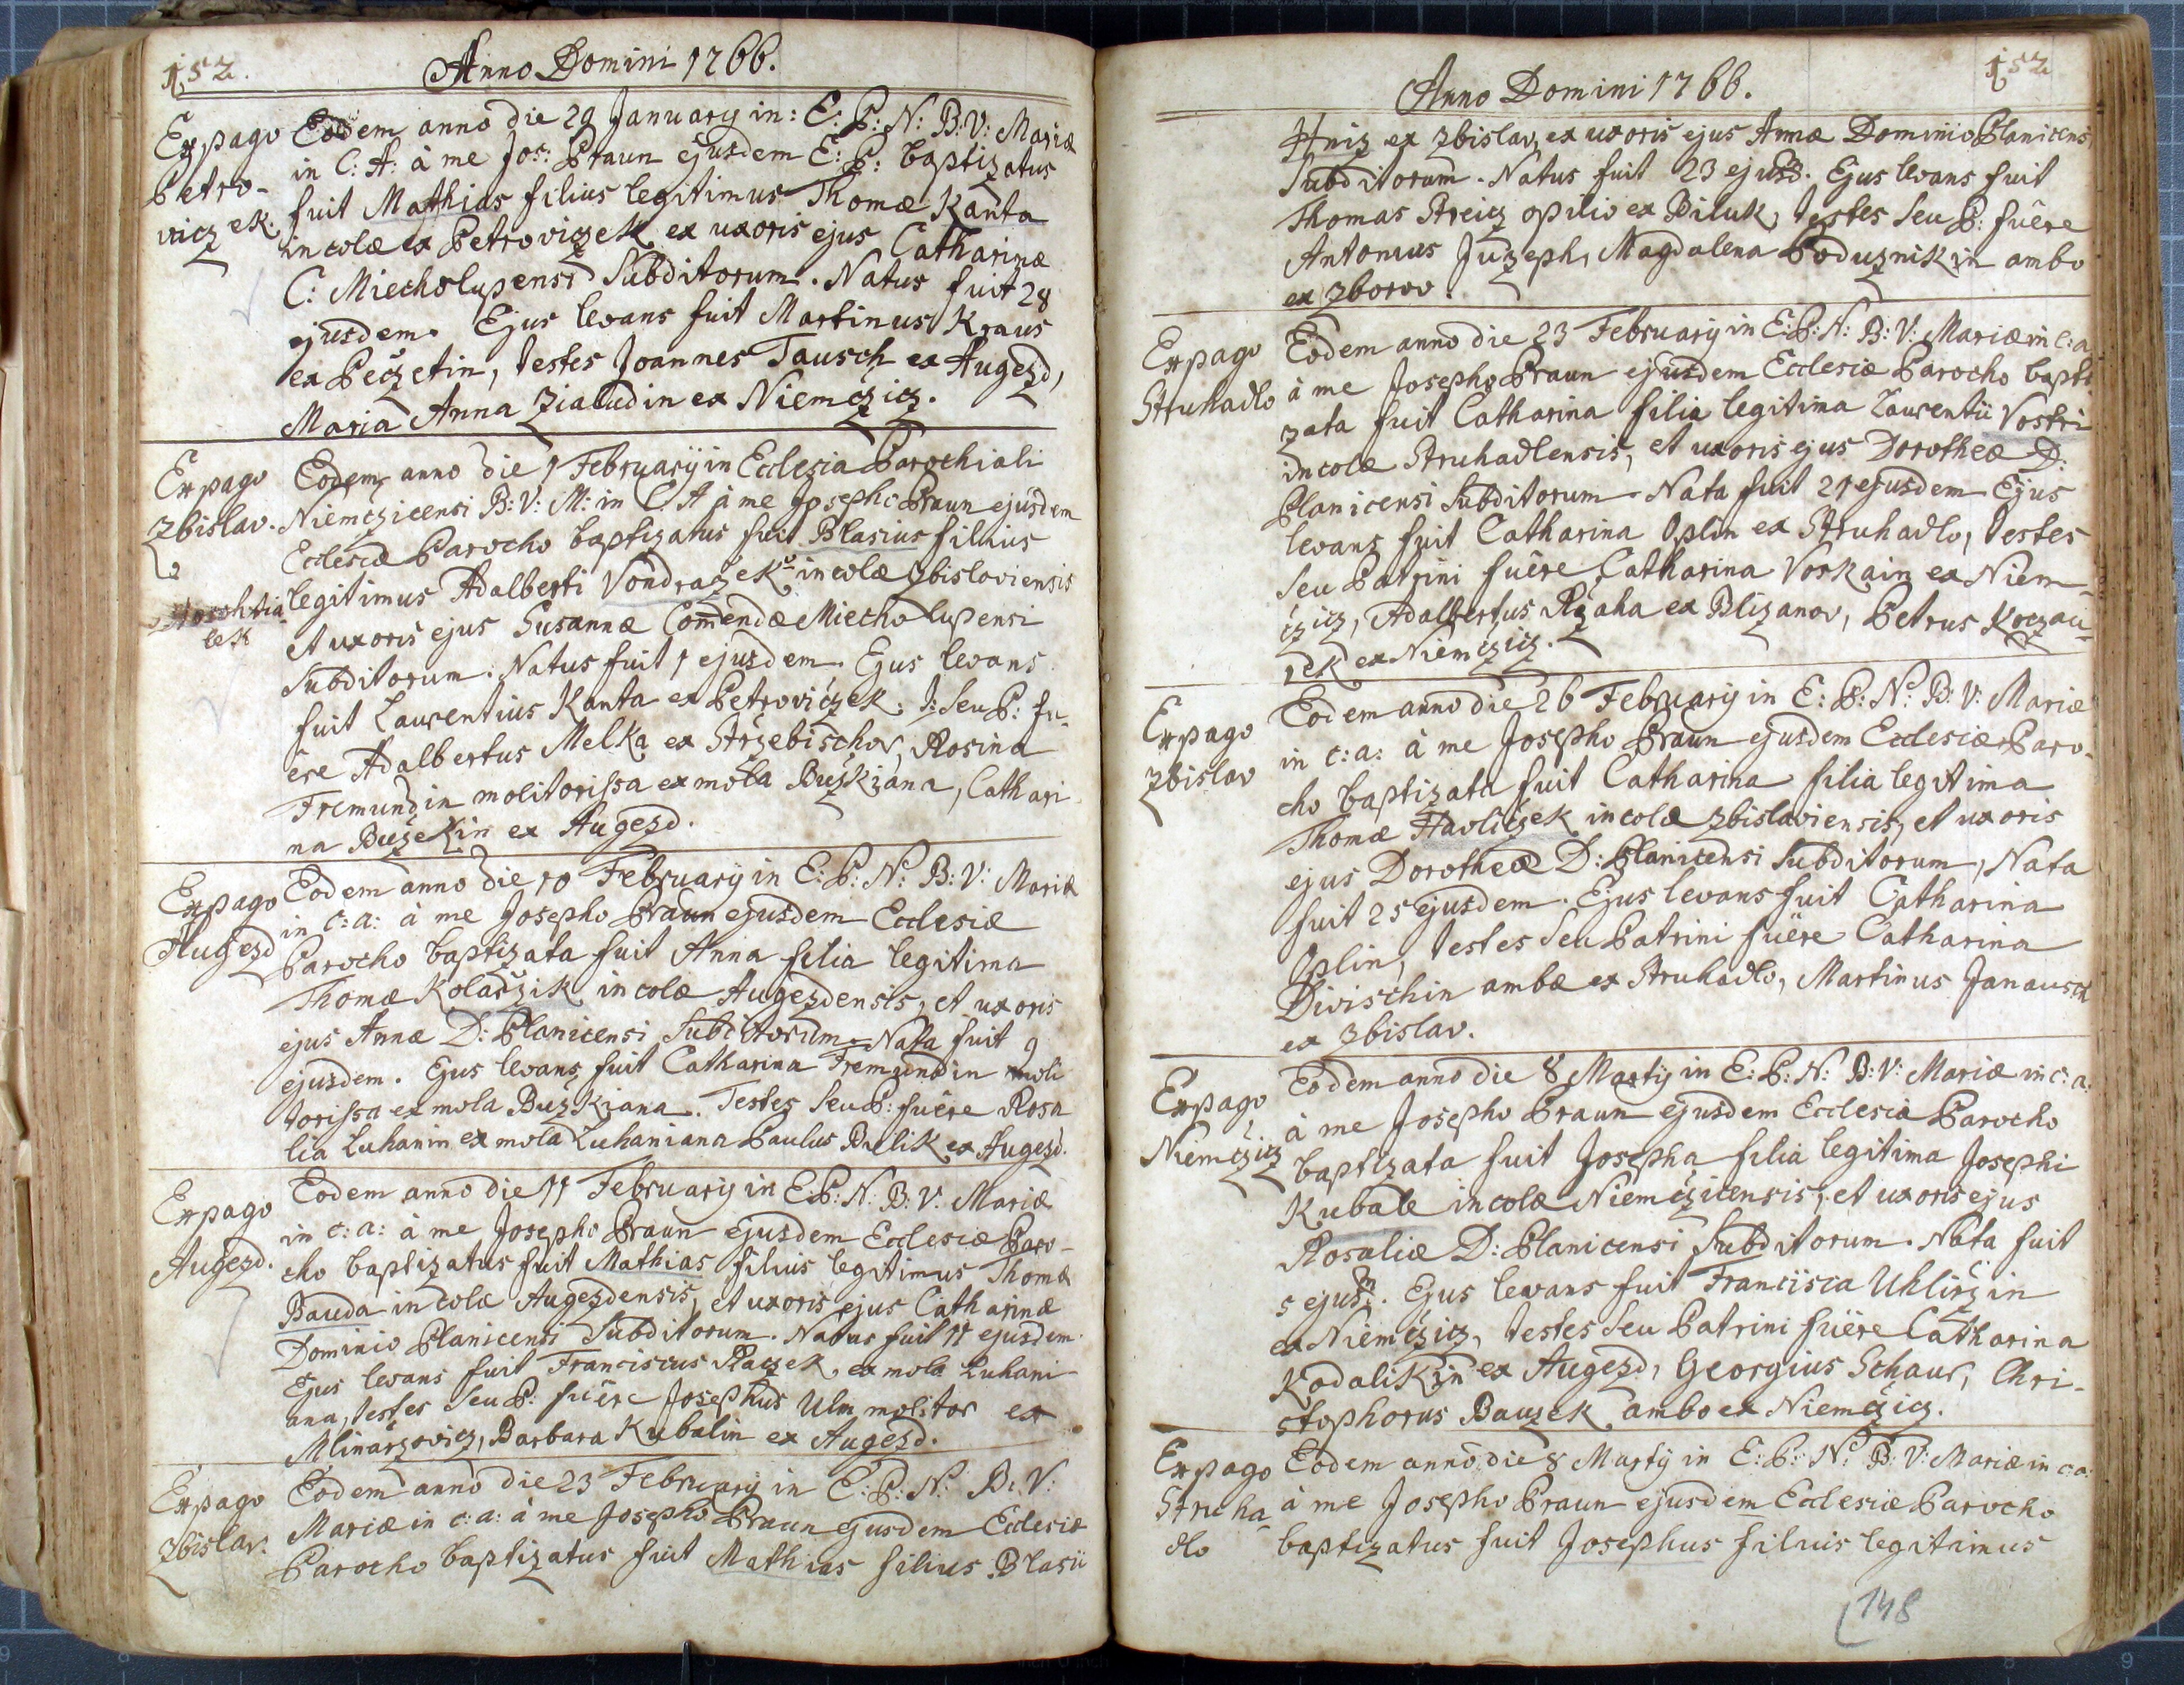 152.
Anno Domini 1766.
Ex pago
Petro-
viczek.
Eodem anno die 29 January in: E: P: N: B: V: Mariæ
in C: A: à me Jos: Braun ejusdem E: P: baptizatus
fuit Mathias filius legitimus Thomæ Kanta
incolæ ex Petroviczek ex uxoris ejus Catharinæ
C: Miecholupensi Subditorum. Natus fuit 28
ejusdem. Ejus levans fuit Martinus Kraus
ex Peczetin, testes Joannes Tausch ex Augezd,
Maria Anna Zialudin ex Niemczicz.
Ex pago
Zbislav.
Eodem anno die 1 February in Ecclesia Parochiali
Niemczicensi B: V: M: in C A à me Josepho Braun ejusdem
Ecclesiæ Parocho baptizatus fuit Blasius filius
legitimus Adalberti Vondrazek incolæ Zbislaviensis
et uxoris ejus Susannæ Comendæ Miecholupensi
lek
Subditorum. Natus fuit 1 ejusdem. Ejus levans
fuit Laurentius Kanta ex Petroviczek. T: Seu P: fu-
ere Adalbertus Melka ex Strzebischov, Rosina
Fremundin molitorissa ex mola Buzkiana, Cathari
na Buzekin ex Augezd.
Ex pago
Augezd
Eodem anno die 10 February in E: P: N: B: V: Mariæ
in c: a: à me Josepho Braun ejusdem Ecclesiæ
Parocho baptizata fuit Anna filia legitima
Thomæ Kolarzik incolæ Augezdensis, et uxoris
ejus Annæ D: Planicensi Subditorum. Nata fuit 9
ejusdem. Ejus levans fuit Catharina Fremundin moli
torissa ex mola Buzkiana. Testes Seu P: fuêre Rosa
lia Luhanin ex mola Luhaniana Paulus Brelik ex Augezd.
Ex pago
Augezd.
Eodem anno die 11 February in E: P: N: B: V: Mariæ
in c: a: à me Josepho Braun ejusdem Ecclesiæ Paro-
cho baptizatus fuit Mathias filius legitimus Thomæ
Bauda incolæ Augezdensis, et uxoris ejus Catharinæ
Dominio Planicensi Subditorum. Natus fuit 11 ejusdem.
Ejus levans fuit Franciscus Raczek ex mola Luhani
ana, testes Seu P: fuêre Josephus Ulm molitor ex
Mlinarzovicz, Barbara Kubalin ex Augezd.
Ex pago
Zbislav.
Eodem anno die 23 February in E: P: N: B: V:
Mariæ in c: a: à me Josepho Braun ejusdem Ecclesiæ
Parocho baptizatus fuit Mathias filius Blasii
152
Anno Domini 1766.
Hniz ex Zbislav, ex uxoris ejus Annæ Dominio Planicens
Subditorum. Natus fuit 23 ejusd. Ejus levans fuit
Thomas Streicz opilio ex Biluk, testes Seu P: fuêre
Antonius Juzeph, Magdalena Poduznikin ambo
ex Zborov.
Ex pago
Struhadlo
Eodem anno die 23 February in E: P: N: B: V: Mariæ in c: a
à me Josepho Braun ejusdem Ecclesiæ Parocho bapti
zata fuit Catharina filia legitima Laurentii Vostri
incolæ Struhadlensis, et uxoris ejus Dorotheæ D:
Planicensi Subditorum. Nata fuit 21 ejusdem Ejus
levans fuit Catharina Oplin ex Struhadlo, testes
Seu Patrini fuêre Catharina Vorkain ex Niem-
czicz, Adalbertus Rzaha ex Blizanov, Petrus Koczau-
rek ex Niemczicz.
Ex pago
Zbislav
Eodem anno die 26 February in E: P: N: B: V: Mariæ
in c: a: à me Josepho Braun ejusdem Ecclesiæ Paro-
cho baptizata fuit Catharina filia legitima
Thomæ Havliczek incolæ Zbislaviensis, et uxoris
ejus Dorotheæ D: Planicensi Subditorum, Nata
fuit 25 ejusdem. Ejus levans fuit Catharina
Oplin, testes Seu Patrini fuêre Catharina
Divischin ambæ ex Struhadlo, Martinus Janausch
ex Zbislav.
Ex pago
Niemczicz
Eodem anno die 8 Marty in E: P: N: B: V: Mariæ in c: a:
à me Josepho Braun ejusdem Ecclesiæ Parocho
baptizata fuit Josepha filia legitima Josephi
Kubale incolæ Niemczicensis, et uxoris ejus
Rosaliæ D: Planicensi Subditorum. Nata fuit
5 ejusdm. Ejus levans fuit Francisca Uhlirzin
ex Niemczicz, testes Seu Patrini fuêre Catharina
Kodalikin ex Augezd, Georgius Schaur, Chri-
stophorus Bauzek ambo ex Niemczicz.
Ex pago
Struha
dlo
Eodem anno die 8 Marty in E: P: N: B: V: Mariæ in c: a:
à me Josepho Braun ejusdem Ecclesiæ Parocho
baptizatus fuit Josephus filius legitimus
148